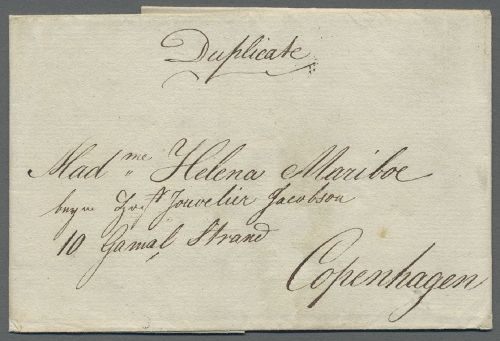 Duplicate
Mad.me Helena Mariboe
beym Jouvelier Jacobson
10 Gamal Strand
Copenhagen